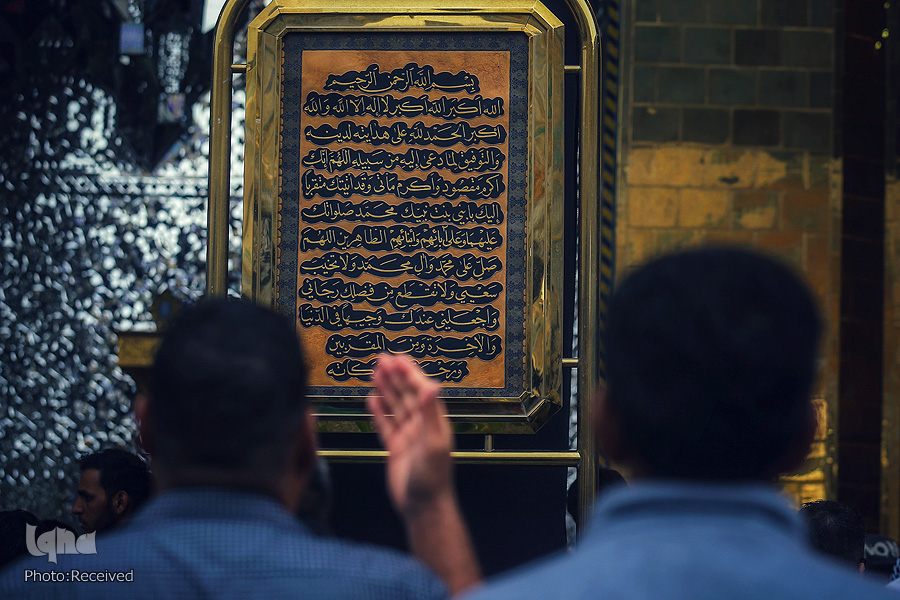 بسم الله الرحمن الرحيم
الله اكبر الله اكبر لا اله الا الله والله
اكبر الحمد لله على هدايته لدينه
والتوفيق لما دعى إليه من سبيله اللهم انك
اكرم مقصود واكرم مأتى وقد اتيتك متقربا
إليك بابن بنت نبيك محمد صلواتك
عليهما وعلى آبائهم وابنائهم الطاهرين اللهم
صل على محمد وآل محمد ولا تخيب
سعيي ولا تقطع من فضلك رجائي
واجعلني عندك وجيها في الدنيا
والآخرة ومن المقربين
Iqna
Photo:Received